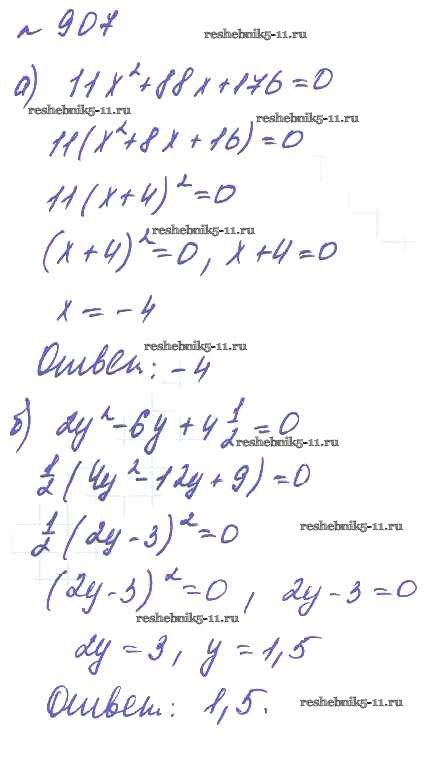 № 907
reshebnik5-11.ru
а) 11x²+88x+176=0
reshebnik5-11.ru
reshebnik5-11.ru
11(x²+8x+16)=0
11(x+4)²=0
reshebnik5-11.ru
(x+4)²=0, x+4=0
x=-4
reshebnik5-11.ru
Ответ: -4
б) 2y²-6y+4 1/2=0
reshebnik5-11.ru
1/2(4y²-12y+9)=0
1/2(2y-3)²=0
reshebnik5-11.ru
(2y-3)²=0, 2y-3=0
reshebnik5-11.ru
2y=3, y=1,5
Ответ: 1,5.
reshebnik5-11.ru